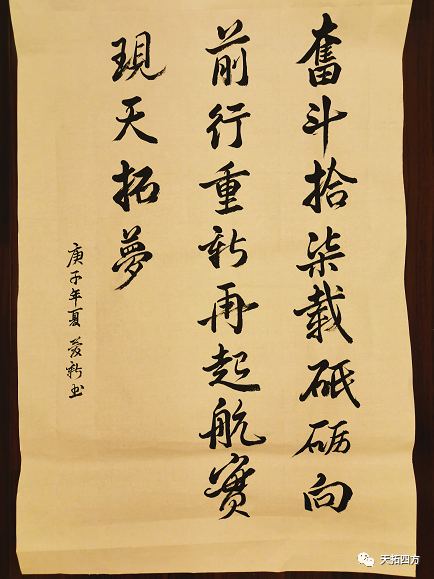 奮斗拾柒載砥砺向
前行重新再起航實
現天拓夢
庚子年夏愛新书
天拓四方